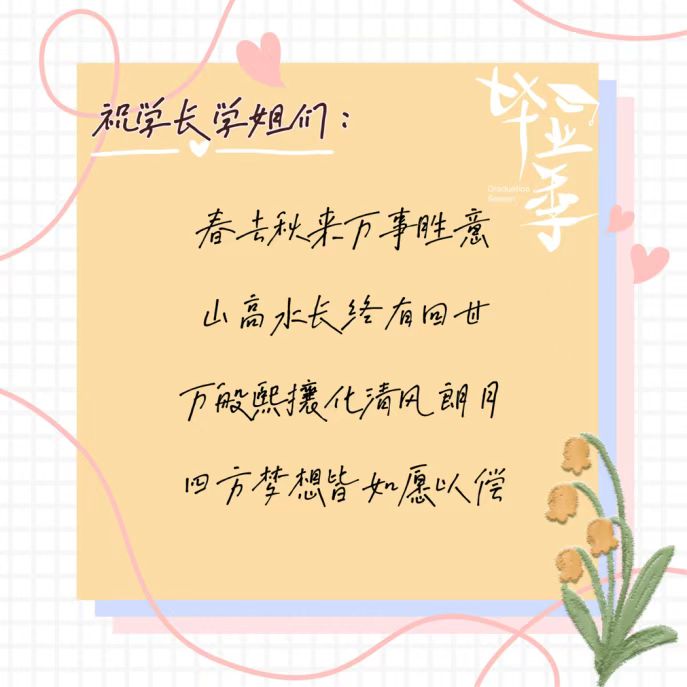 祝学长学姐们：
毕业季
Graduation
Season
春去秋来万事胜意
山高水长终有回甘
万般熙攘化清风朗月
四方梦想皆如愿以偿